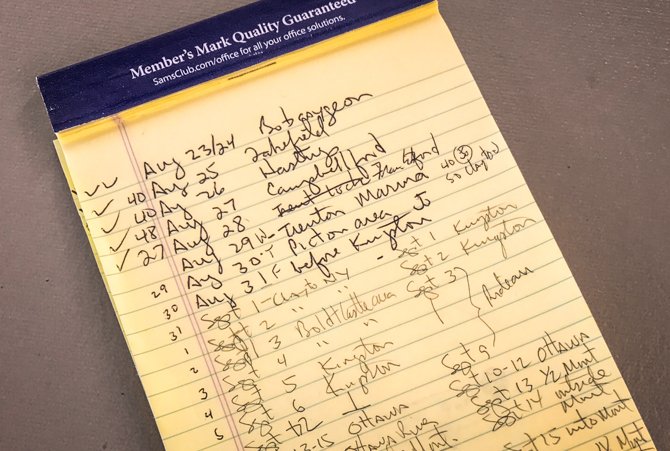 Member's Mark Quality Guaranteed
SamsClub.com/office for all your office solutions.
Aug 23/24 Bobcaygeon
40 Aug 25 Lakefield
40 Aug 26 Hastings
48 Aug 27 Campbellford
27 Aug 28 Trent
Aug 29 W - Trenton Marina 40 30
Aug 30 T Picton area 50
29 Aug 31 F before Kingston
30 Sept 1 - Clayton NY Sept 1 Kingston
31 Sept 2 " " Sept 2 Kingston
1 Sept 3 Boldt Castle area Sept 3
2 Sept 4 " " Rideau
3 Sept 5 Kingston
4 Sept 6 Kingston Sept 9
5 Sept Sept 10-12 Ottawa
13-15 Ottawa Sept 13 1/2 Mont
Ottawa River Sept 14 outside
Mont. Mont
Sept 15 into Mont
Mont